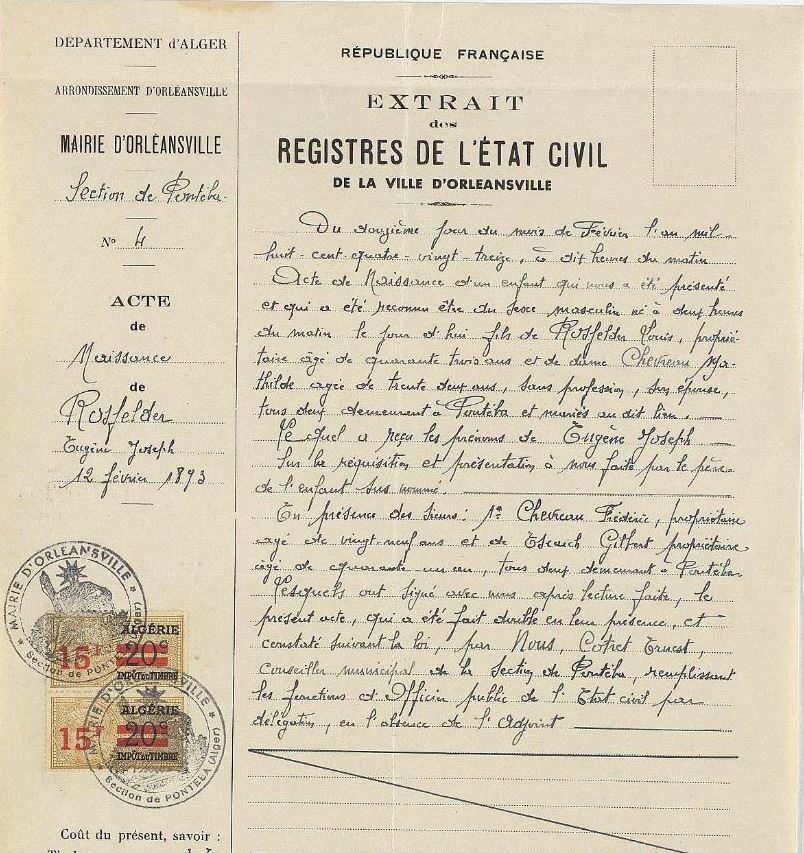 DEPARTEMENT d'ALGER
ARRONDISSEMENT D'ORLÉANSVILLE
MAIRIE D'ORLÉANSVILLE
Section de Pontéba
N° 4
ACTE
de
Naissance
de
Rosfelder
Eugène Joseph
12 février 1893
RÉPUBLIQUE FRANÇAISE
EXTRAIT
des
REGISTRES DE L'ÉTAT CIVIL
DE LA VILLE D'ORLEANSVILLE
Du douzième jour du mois de Février l'an mil
huit-cent-quatre-vingt-treize, à dix heures du matin
Acte de Naissance d'un enfant qui nous a été présenté
et qui a été reconnu être du sexe masculin né à deux heures
du matin le jour d'hui fils de Rosfelder Louis, proprié-
taire âgé de quarante trois ans et de dame Chevreau Ma-
thilde agée de trente deux ans, sans profession, son épouse,
tous deux demeurant à Pontéba et mariés au dit lieu.
Lequel a reçu les prénoms de Eugène Joseph
Sur la requisition et présentation à nous faite par le père
de l'enfant sus nommé.
En présence des sieurs: 1° Chevreau Frédéric, propriétaire
agé de vingt-neuf ans et de Gilbert propriétaire
agé de quarante-un an, tous deux demeurant à Pontéba
Lesquels ont signé avec nous après lecture faite, le
présent acte, qui a été fait double en leur présence, et
constaté suivant la loi, par Nous, Cotret Ernest,
Conseiller municipal de la Section de Pontéba, remplissant
les fonctions d'Officier public de l'Etat civil par
délégation, en l'absence de l'Adjoint
MAIRIE D'ORLÉANSVILLE
Section de PONTEBA (Alger)
ALGÉRIE
15F 20c
IMPÔT DU TIMBRE
MAIRIE D'ORLÉANSVILLE
ALGÉRIE
15F 20c
IMPÔT DU TIMBRE
Section de PONTEBA (Alger)
Coût du présent, savoir :